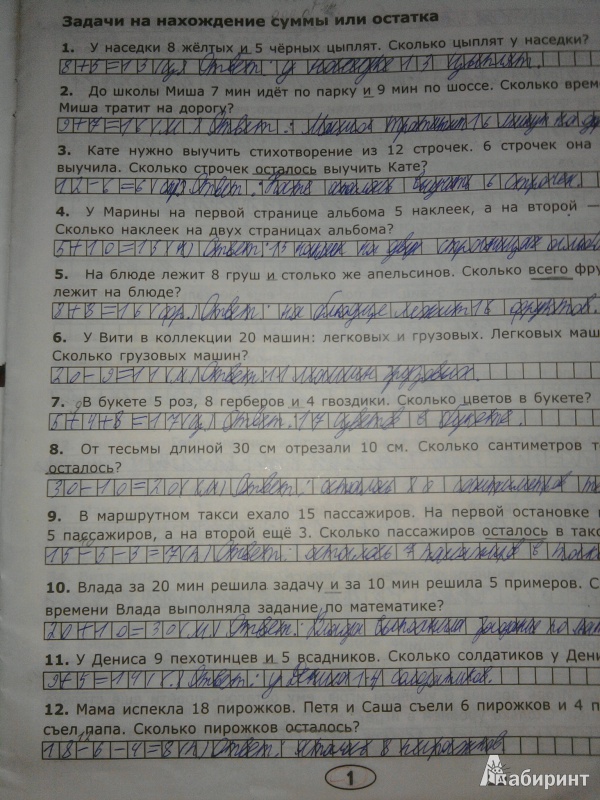 Задачи на нахождение суммы или остатка
1. У наседки 8 жёлтых и 5 чёрных цыплят. Сколько цыплят у наседки?
8+5=13(ц.) Ответ: у наседки 13 цыплят.
2. До школы Миша 7 мин идёт по парку и 9 мин по шоссе. Сколько врем
Миша тратит на дорогу?
9+7=16(м.) Ответ: Миша тратит 16 минут на до
3. Кате нужно выучить стихотворение из 12 строчек. 6 строчек она
выучила. Сколько строчек осталось выучить Кате?
12-6=6(стр.) Ответ: Кате осталось выучить 6 строчек.
4. У Марины на первой странице альбома 5 наклеек, а на второй —
Сколько наклеек на двух страницах альбома?
5+10=15(н) Ответ: 15 наклеек на двух страницах альбома
5. На блюде лежит 8 груш и столько же апельсинов. Сколько всего фру
лежит на блюде?
8+8=16(фр.) Ответ: на блюдце лежит 16 фруктов.
6. У Вити в коллекции 20 машин: легковых и грузовых. Легковых маш
Сколько грузовых машин?
20-9=11(м.) Ответ: 11 машин грузовых.
7. В букете 5 роз, 8 герберов и 4 гвоздики. Сколько цветов в букете?
5+4+8=17(ц.) Ответ: 17 цветов в букете.
8. От тесьмы длиной 30 см отрезали 10 см. Сколько сантиметров т
осталось?
30-10=20(см) Ответ: осталось сантиметров
9. В маршрутном такси ехало 15 пассажиров. На первой остановке
5 пассажиров, а на второй ещё 3. Сколько пассажиров осталось в так
15-5-3=7(п) Ответ: осталось 7 пассажиров в такси
10. Влада за 20 мин решила задачу и за 10 мин решила 5 примеров. С
времени Влада выполняла задание по математике?
20+10=30(м) Ответ: Влада выполняла задание по мате
11. У Дениса 9 пехотинцев и 5 всадников. Сколько солдатиков у Дени
9+5=14(с.) Ответ: у Дениса 14 солдатиков.
12. Мама испекла 18 пирожков. Петя и Саша съели 6 пирожков и 4 п
съел папа. Сколько пирожков осталось?
18-6-4=8(п) Ответ: осталось 8 пирожков
1
Лабиринт